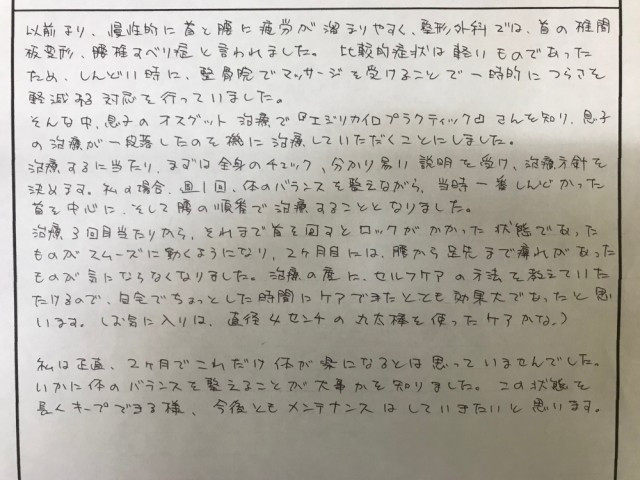 以前より、慢性的に首と腰に疲労が溜まりやすく、整形外科では、首の椎間
板変形、腰椎すべり症と言われました。 比較的症状は軽いものであった
ため、しんどい時に、整骨院でマッサージを受けることで一時的につらさを
軽減する対応を行っていました。
そんな中、息子のオスグット治療で『エジリカイロプラクティック』さんを知り、息子
の治療が一段落したのを機に治療していただくことにしました。
治療するに当たり、まずは全身のチェック、分かり易い説明を受け、治療方針を
決めます。私の場合、週1回、体のバランスを整えながら、当時一番しんどかった
首を中心に、そして腰の順番で治療することとなりました。
治療3回目当たりから、それまで首を回すとロックがかかった状態であった
ものがスムーズに動くようになり、2ヶ月目には、腰から足先まで痺れがあった
ものが気にならなくなりました。治療の度に、セルフケアの方法を教えていた
だけるので、自宅でちょっとした時間にケアできたとても効果大であったと思
います。(お気に入りは、直径4センチの丸太棒を使ったケアかな。)
私は正直、2ヶ月でこれだけ体が楽になるとは思っていませんでした。
いかに体のバランスを整えることが大事かを知りました。この状態を
長くキープできる様、今後ともメンテナンスはしていきたいと思います。